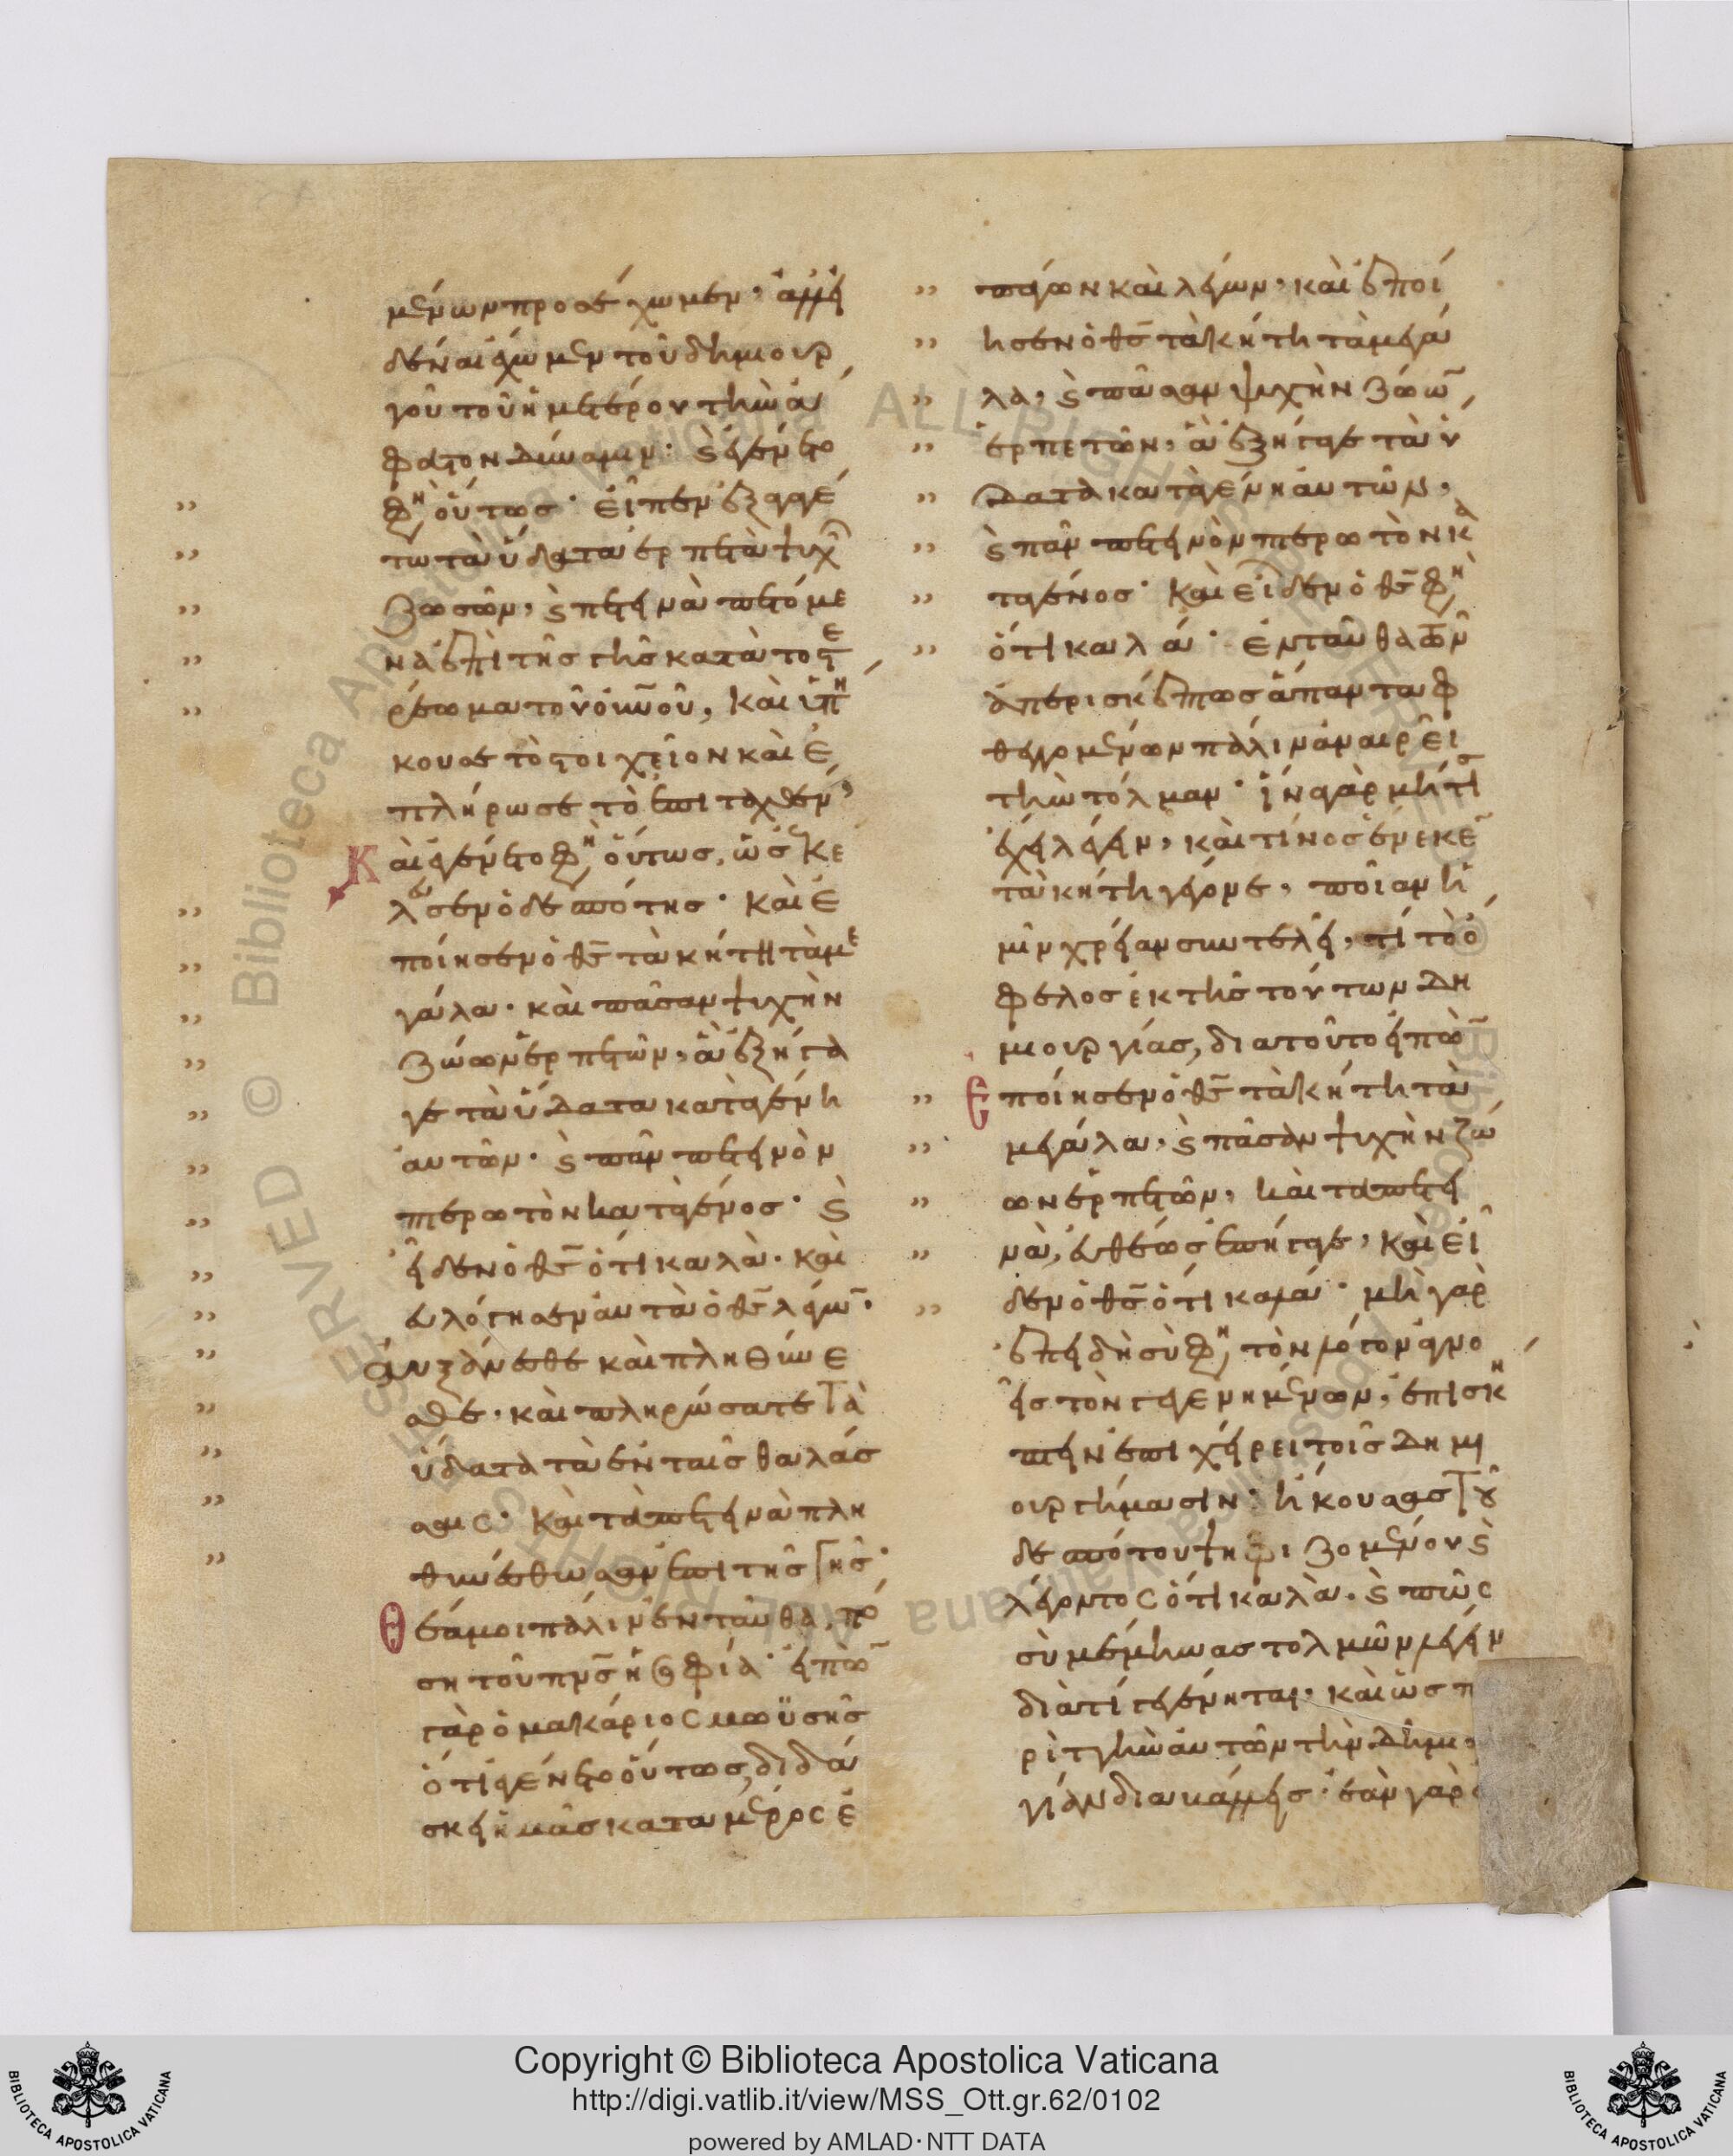 μένων προσέχωμεν, ἀλλ' εἰ
δέναι ἔχωμεν τοῦ δημιουρ
γοῦ τοῦ ἡμετέρου τὴν ἄ
φατον δύναμιν· καὶ ἐγένετο
φη οὕτως· εἶπεν ἐξαγαγέ
τω τὰ ὕδατα ἑρπετὰ ψυχῶ
ζωσῶν, καὶ πετεινὰ πετόμε
να ἐπὶ τῆς γῆς κατὰ τὸ στε
ρέωμα τοῦ οὐνοῦ, καὶ ὑπή
κουσε τὸ στοιχεῖον καὶ ἐ
πλήρωσε τὸ ἐπιταχθέν,
Καὶ ἐγένετο φη οὕτως, ὡς ἐκέ
λευσεν ὁ δεσπότης· Καὶ ἐ
ποίησεν ὁ θς τὰ κήτη τὰ με
γάλα· καὶ πᾶσαν ψυχὴν
ζώων ἑρπετῶν, ἃ ἐξήγα
γε τὰ ὕδατα κατὰ γένη
αὐτῶν· καὶ πᾶν πετεινὸν
πτερωτὸν κατὰ γένος· καὶ
εἶδεν ὁ θς ὅτι καλὰ· καὶ
εὐλόγησεν αὐτὰ ὁ θς λέγων·
αὐξάνεσθε καὶ πληθύνε
σθε· καὶ πληρώσατε τὰ
ὕδατα τὰ ἐν ταῖς θαλάσ
σαις· Καὶ τὰ πετεινὰ πλη
θυνέσθωσαν ἐπὶ τῆς γῆς·
Θέα μοι πάλιν ἐνταῦθα, πό
ση τοῦ πνς ἡ σοφία· εἰπὼν
γὰρ ὁ μακάριος μωϋσῆς
ὅτι ἐγένετο οὕτως, διδά
σκει ἡμᾶς κατὰ μέρος ἐ
παγων καὶ λέγων· καὶ ἐποί
ησεν ὁ θς τὰ κήτη τὰ μεγά
λα, καὶ πᾶσαν ψυχὴν ζώων
ἑρπετῶν, ἃ ἐξήγαγε τὰ ὕ
δατα κατὰ γένη αὐτῶν,
καὶ πᾶν πετεινὸν πτερωτὸν κα
τὰ γένος· Καὶ εἶδεν ὁ θς φη
ὅτι καλά· ἐνταῦθα τῶν
ἀπερισκέπτως ἅπαντα φ
θεγγομένων πάλιν ἀναιρεῖ
τὴν τόλμαν· ἵνα γὰρ μή τις
ἔχῃ λέγειν, καὶ τίνος ἕνεκεν
τὰ κήτη γέγονε, ποίαν ἡ
μῖν χρείαν συντελεῖ, τί τὸ ὄ
φελος ἐκ τῆς τούτων δη
μιουργίας, διὰ τοῦτο εἰπὼν
Ἐποίησεν ὁ θς τὰ κήτη τὰ
μεγάλα, καὶ πᾶσαν ψυχὴν ζώ
ων ἑρπετῶν, καὶ τὰ πετει
νὰ, εὐθέως ἐπήγαγε, καὶ εἶ
δεν ὁ θς ὅτι καλά· μὴ γὰρ
ἐπειδὴ σὺ φη τὸν λόγον ἀγνο
εῖς τῶν γεγενημένων, ἐπισκή
πτειν ἐπιχείρει τοῖς δημι
ουργήμασιν· ἤκουσας τοῦ
δεσπότου ψηφιζομένου καὶ
λέγοντος ὅτι καλὰ, καὶ πῶς
σὺ μέμηνας τολμῶν λέγειν
διὰ τί γεγένηται, καὶ ὡς π
ριττὴν αὐτῶν τὴν δημι
γίαν διαβάλλεις· ἐὰν γὰρ
Copyright © Biblioteca Apostolica Vaticana
http://digi.vatlib.it/view/MSS_Ott.gr.62/0102
powered by AMLAD·NTT DATA
BIBLIOTECA APOSTOLICA VATICANA
BIBLIOTECA APOSTOLICA VATICANA